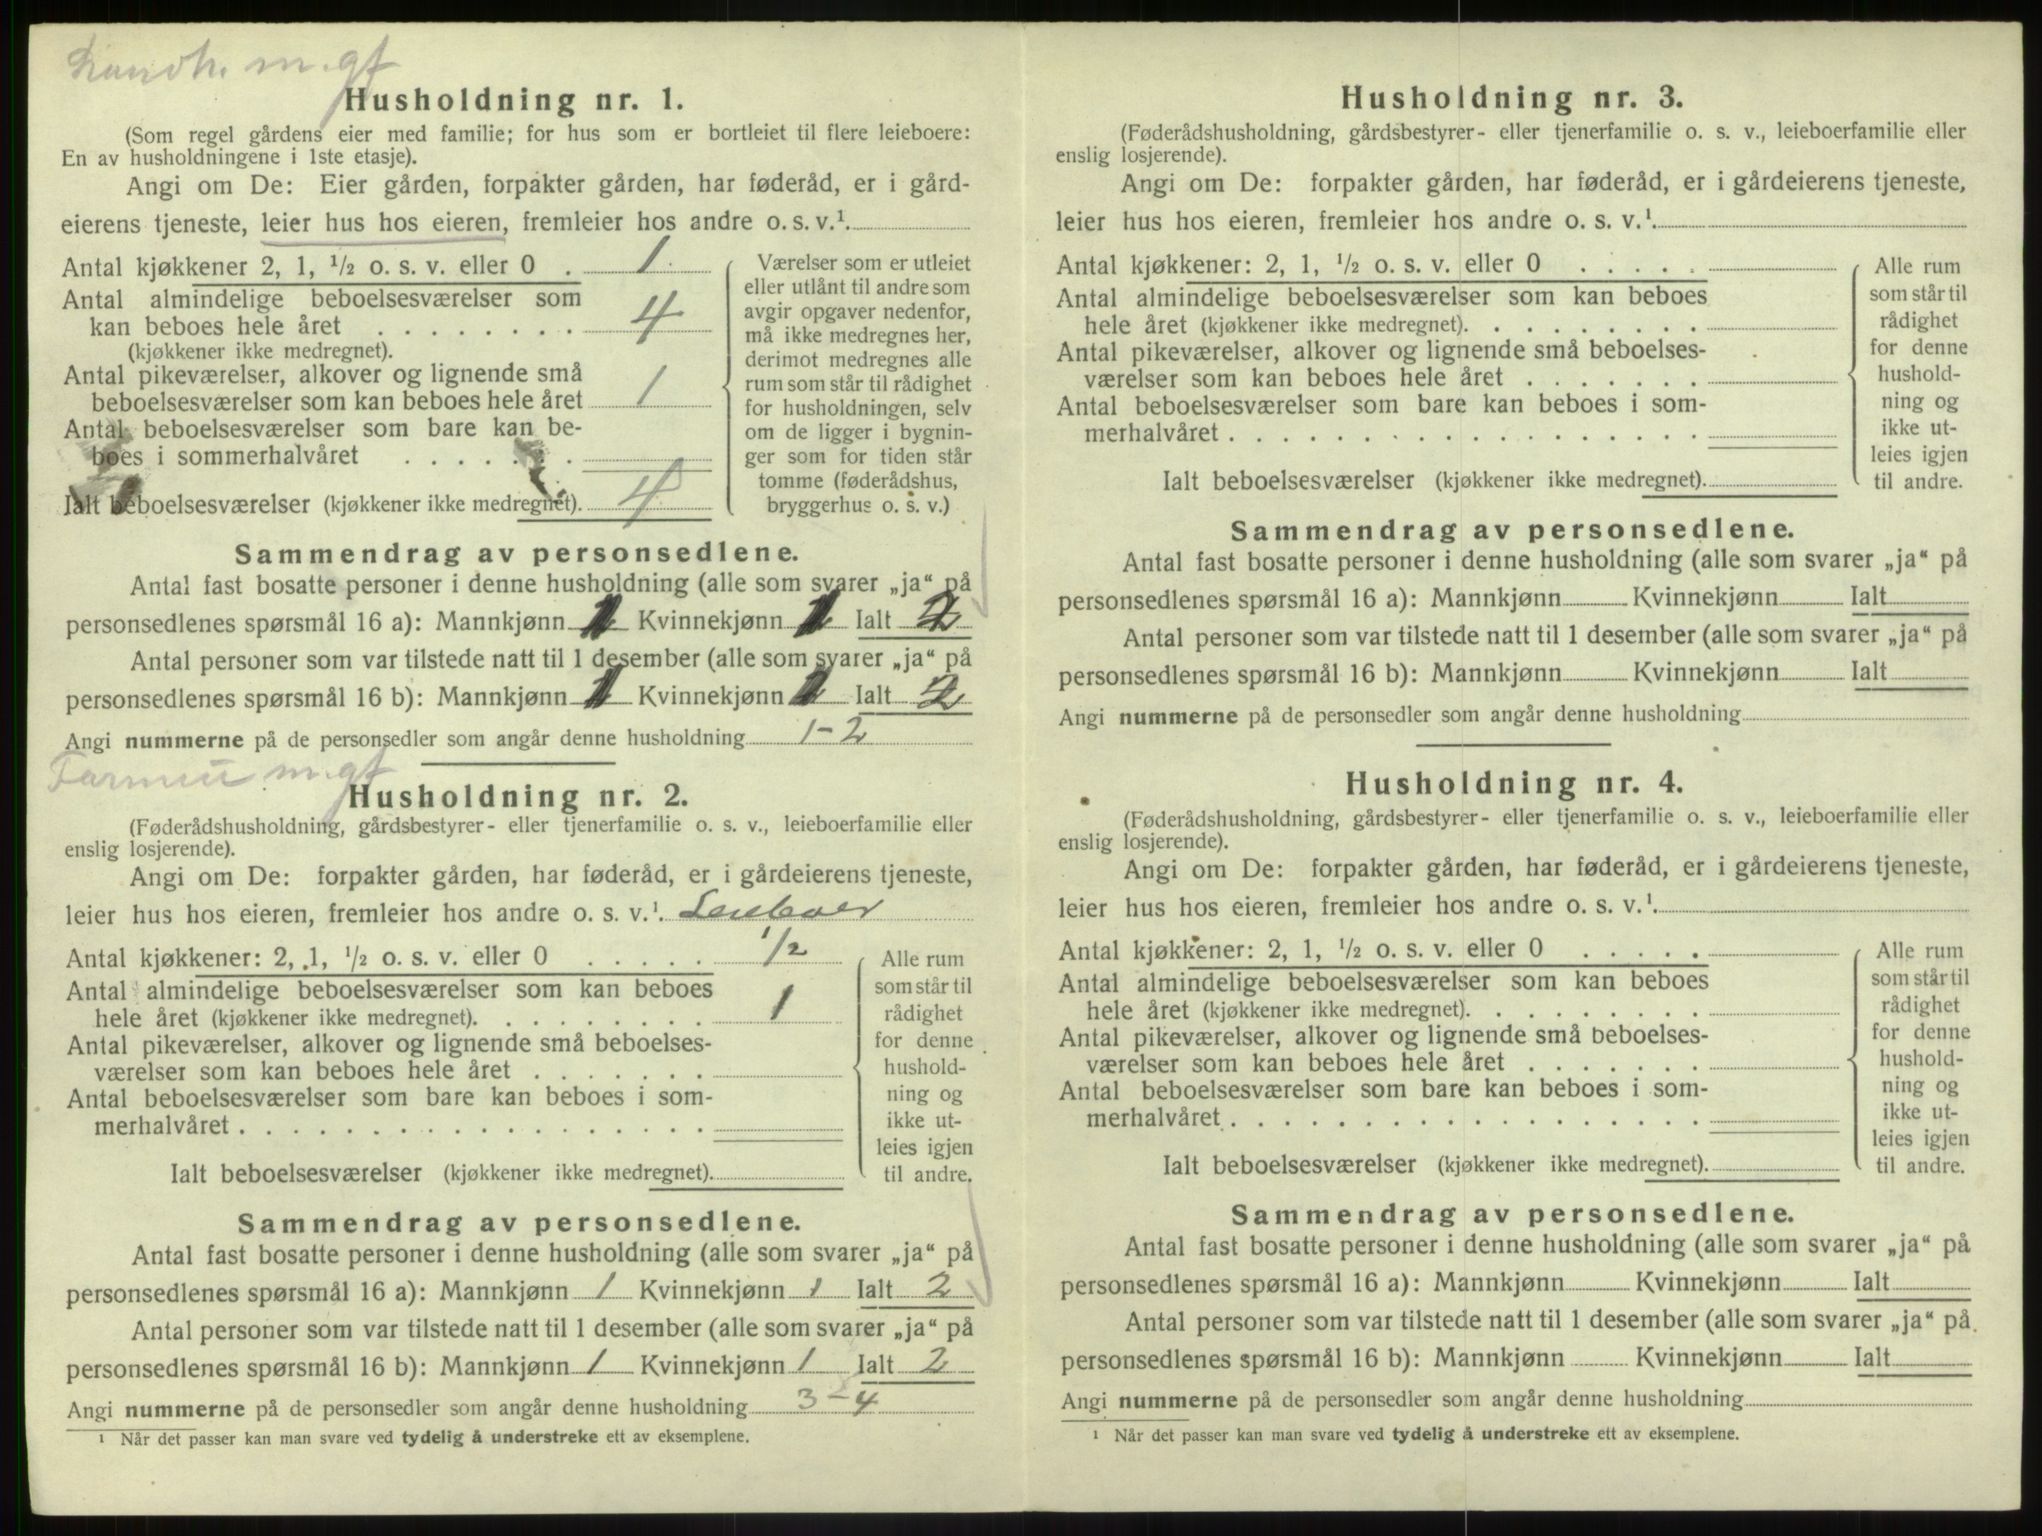 m.gf
Husholdning nr. 1.
(Som regel gårdens eier med familie; for hus som er bortleiet til flere leieboere:
En av husholdningene i 1ste etasje).
Angi om De: Eier gården, forpakter gården, har føderåd, er i gård-
eierens tjeneste, leier hus hos eieren, fremleier hos andre o. s. v.¹
Antal kjøkkener 2, 1, ½ o. s. v. eller 0 . 1
Antal almindelige beboelsesværelser som
kan beboes hele året . . . . . . . . 4
(kjøkkener ikke medregnet).
Antal pikeværelser, alkover og lignende små
beboelsesværelser som kan beboes hele året 1
Antal beboelsesværelser som bare kan be-
boes i sommerhalvåret . . . . . . .
Ialt beboelsesværelser (kjøkkener ikke medregnet). 4
Værelser som er utleiet
eller utlånt til andre som
avgir opgaver nedenfor,
må ikke medregnes her,
derimot medregnes alle
rum som står til rådighet
for husholdningen, selv
om de ligger i bygnin-
ger som for tiden står
tomme (føderådshus,
bryggerhus o. s. v.)
Sammendrag av personsedlene.
Antal fast bosatte personer i denne husholdning (alle som svarer „ja“ på
personsedlenes spørsmål 16 a): Mannkjønn 1 Kvinnekjønn 1 Ialt 2
Antal personer som var tilstede natt til 1 desember (alle som svarer „ja“ på
personsedlenes spørsmål 16 b): Mannkjønn 1 Kvinnekjønn 1 Ialt 2
Angi nummerne på de personsedler som angår denne husholdning 1-2
m.gf
Husholdning nr. 2.
(Føderådshusholdning, gårdsbestyrer- eller tjenerfamilie o. s. v., leieboerfamilie eller
enslig losjerende).
Angi om De: forpakter gården, har føderåd, er i gårdeierens tjeneste,
leier hus hos eieren, fremleier hos andre o. s. v.¹. Leieboer
Antal kjøkkener: 2, 1, ½ o. s. v. eller 0 . . . . . 1/2
Antal almindelige beboelsesværelser som kan beboes
hele året (kjøkkener ikke medregnet). . . . . . . . 1
Antal pikeværelser, alkover og lignende små beboelses-
værelser som kan beboes hele året . . . . . . .
Antal beboelsesværelser som bare kan beboes i som-
merhalvåret . . . . . . . . . . . . . . . . . .
Ialt beboelsesværelser (kjøkkener ikke medregnet).
Alle rum
som står til
rådighet
for denne
hushold-
ning og
ikke ut-
leies igjen
til andre.
Sammendrag av personsedlene.
Antal fast bosatte personer i denne husholdning (alle som svarer „ja“ på
personsedlenes spørsmål 16 a): Mannkjønn 1 Kvinnekjønn 1 Ialt 2
Antal personer som var tilstede natt til 1 desember (alle som svarer „ja“ på
personsedlenes spørsmål 16 b): Mannkjønn 1 Kvinnekjønn 1 Ialt 2
Angi nummerne på de personsedler som angår denne husholdning 3-4
¹ Når det passer kan man svare ved tydelig å understreke ett av eksemplene.
Husholdning nr. 3.
(Føderådshusholdning, gårdsbestyrer- eller tjenerfamilie o. s. v., leieboerfamilie eller
enslig losjerende).
Angi om De: forpakter gården, har føderåd, er i gårdeierens tjeneste,
leier hus hos eieren, fremleier hos andre o. s. v.¹.
Antal kjøkkener: 2, 1, ½ o. s. v. eller 0 . . . . .
Antal almindelige beboelsesværelser som kan beboes
hele året (kjøkkener ikke medregnet). . . . . . . .
Antal pikeværelser, alkover og lignende små beboelses-
værelser som kan beboes hele året . . . . . . .
Antal beboelsesværelser som bare kan beboes i som-
merhalvåret . . . . . . . . . . . . . . . . . .
Ialt beboelsesværelser (kjøkkener ikke medregnet).
Alle rum
som står til
rådighet
for denne
hushold-
ning og
ikke ut-
leies igjen
til andre.
Sammendrag av personsedlene.
Antal fast bosatte personer i denne husholdning (alle som svarer „ja“ på
personsedlenes spørsmål 16 a): Mannkjønn Kvinnekjønn Ialt
Antal personer som var tilstede natt til 1 desember (alle som svarer „ja“ på
personsedlenes spørsmål 16 b): Mannkjønn Kvinnekjønn Ialt
Angi nummerne på de personsedler som angår denne husholdning
Husholdning nr. 4.
(Føderådshusholdning, gårdsbestyrer- eller tjenerfamilie o. s. v., leieboerfamilie eller
enslig losjerende).
Angi om De: forpakter gården, har føderåd, er i gårdeierens tjeneste,
leier hus hos eieren, fremleier hos andre o. s. v.¹.
Antal kjøkkener: 2, 1, ½ o. s. v. eller 0 . . . . .
Antal almindelige beboelsesværelser som kan beboes
hele året (kjøkkener ikke medregnet). . . . . . . .
Antal pikeværelser, alkover og lignende små beboelses-
værelser som kan beboes hele året . . . . . . .
Antal beboelsesværelser som bare kan beboes i som-
merhalvåret . . . . . . . . . . . . . . . . . .
Ialt beboelsesværelser (kjøkkener ikke medregnet).
Alle rum
som står til
rådighet
for denne
hushold-
ning og
ikke ut-
leies igjen
til andre.
Sammendrag av personsedlene.
Antal fast bosatte personer i denne husholdning (alle som svarer „ja“ på
personsedlenes spørsmål 16 a): Mannkjønn Kvinnekjønn Ialt
Antal personer som var tilstede natt til 1 desember (alle som svarer „ja“ på
personsedlenes spørsmål 16 b): Mannkjønn Kvinnekjønn Ialt
Angi nummerne på de personsedler som angår denne husholdning
¹ Når det passer kan man svare ved tydelig å understreke ett av eksemplene.